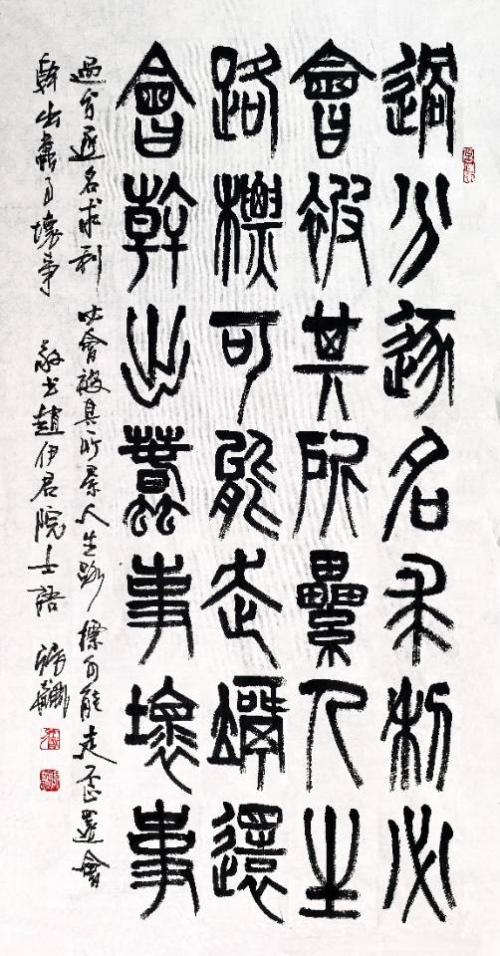 過分逐名求利必
會被其所纍人生
路標可能走竵還
會幹出蠢事壞事
過分逐名求利必會被其所累人生路標可能走歪還會
幹出蠢事壞事 敬書趙伊君院士語 張飆